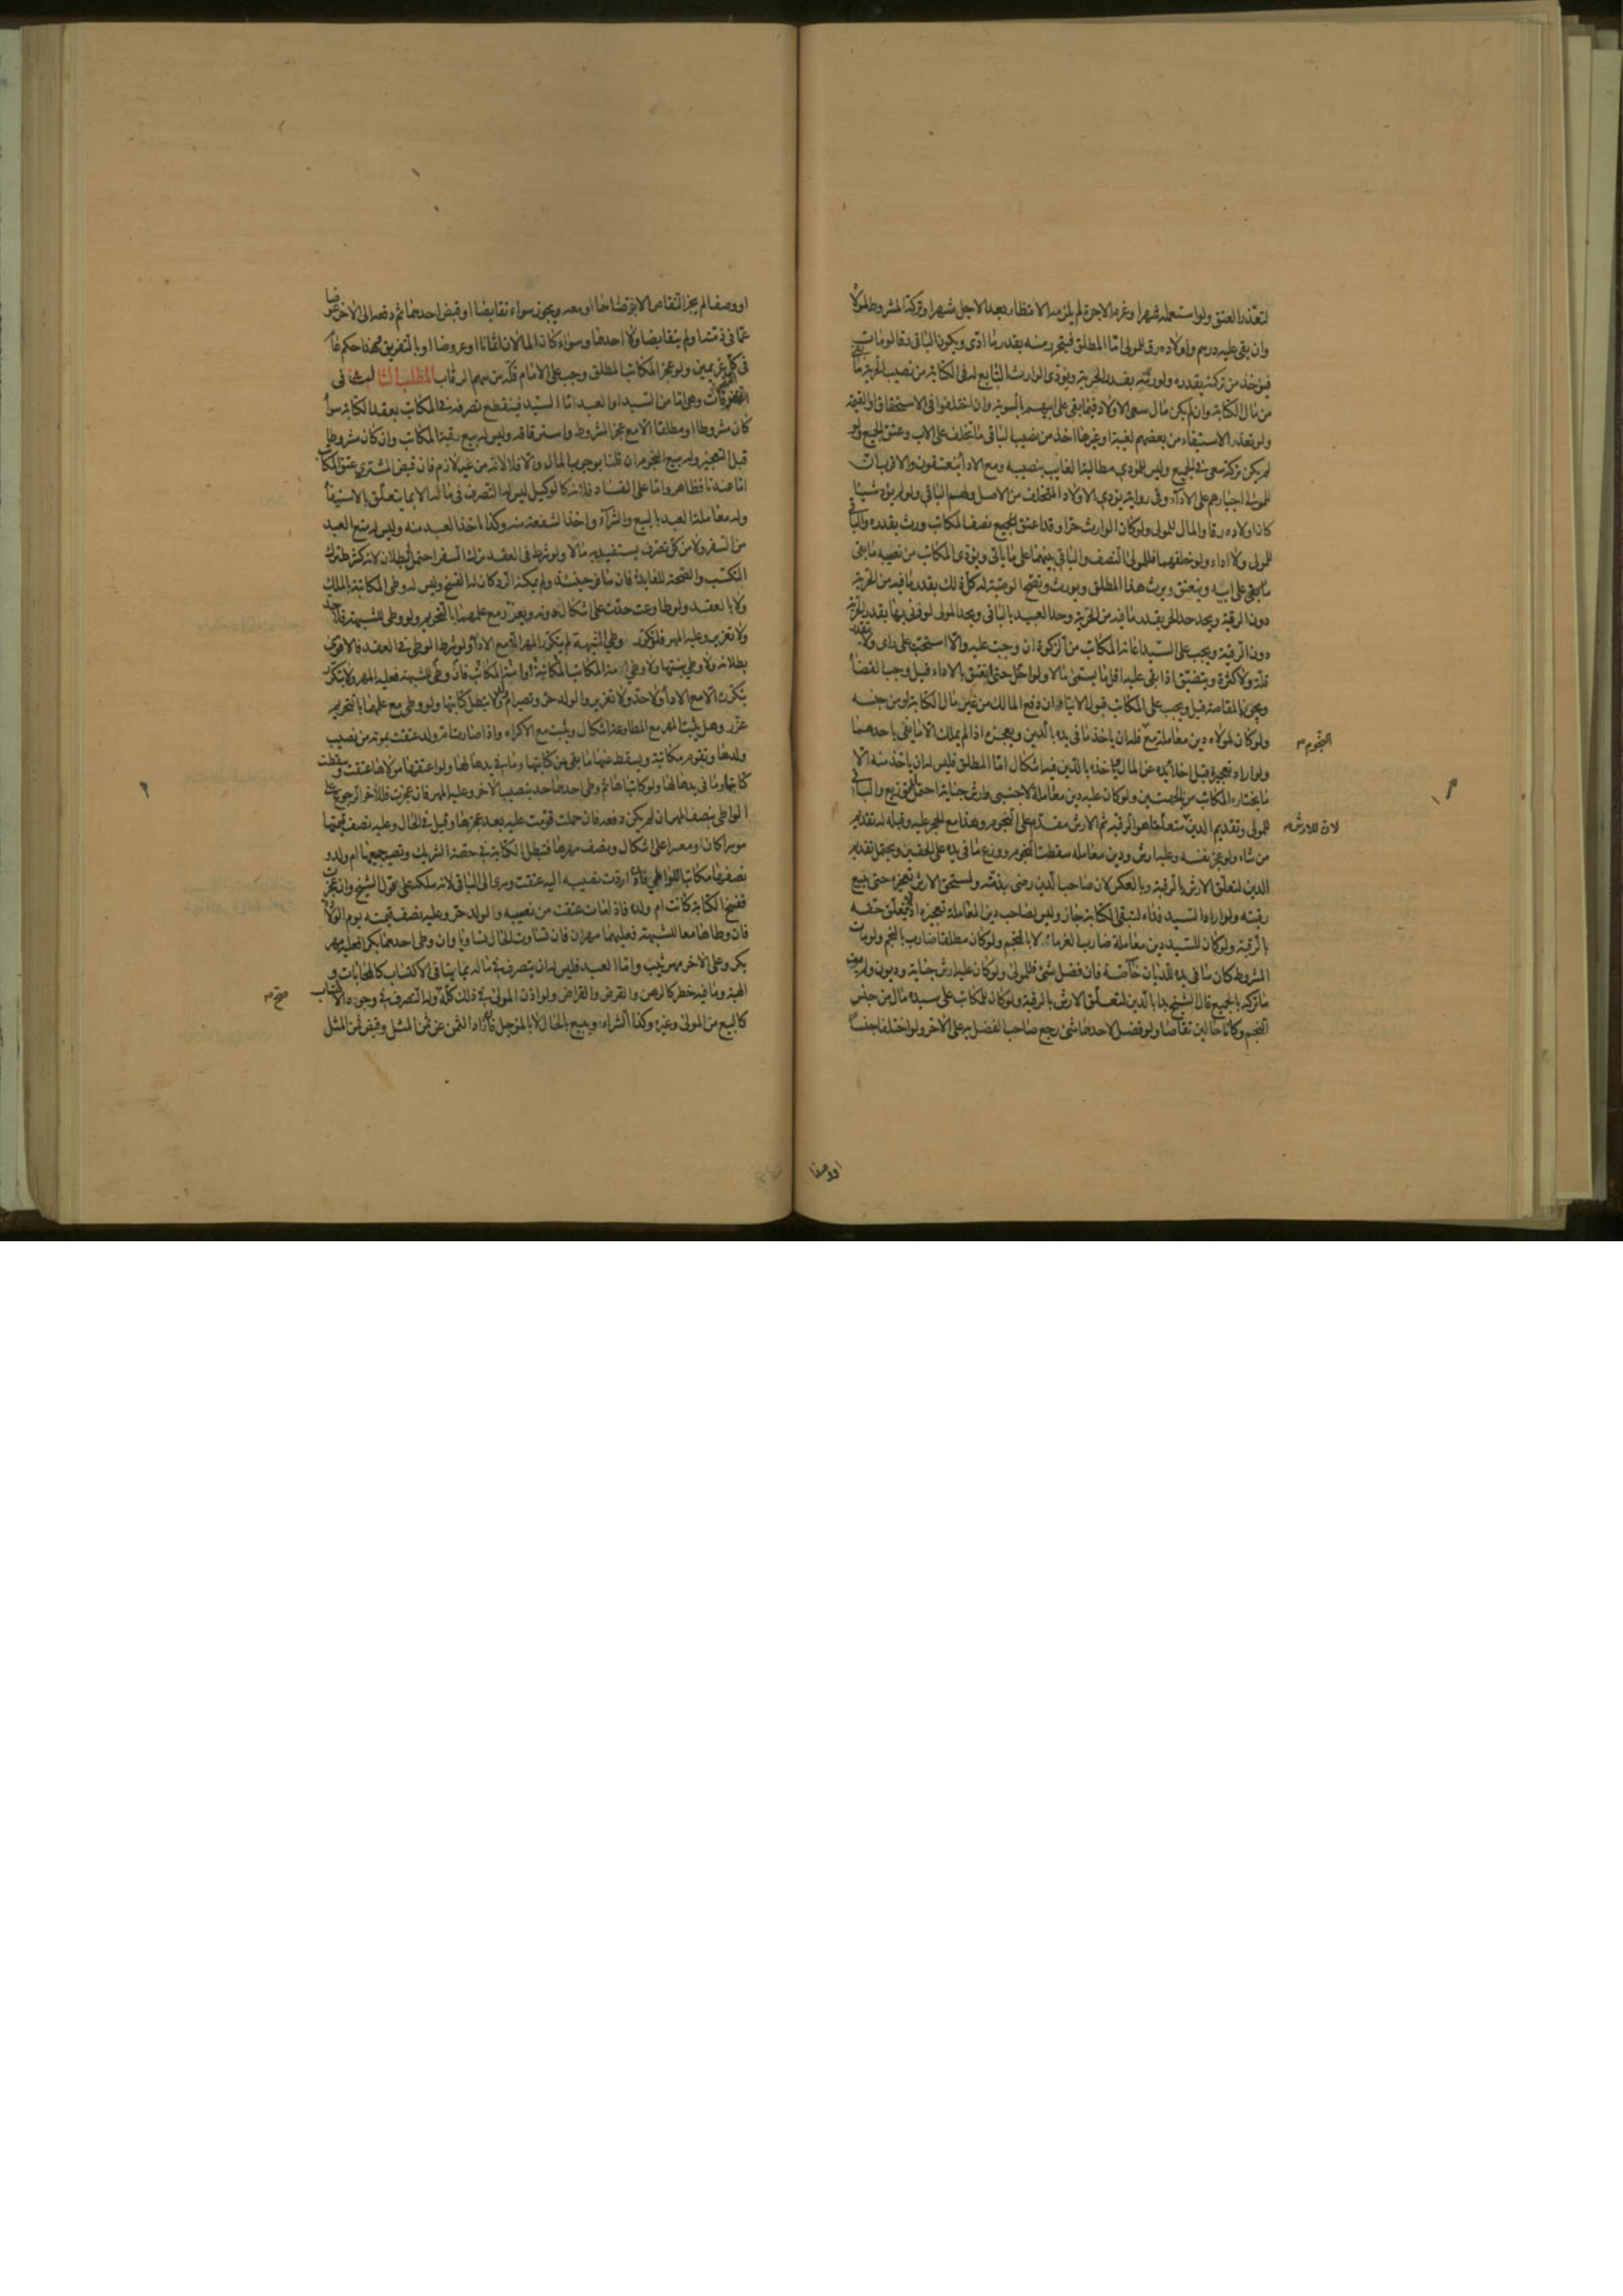 لتعذر العتق ولو استعمله شهرا وغرم الاجرة لم يلزمه الانتظار بعد الاجل شهرا وتركة المشروط لمولاه
وان بقى عليه درهم واولاده رق للمولى اما المطلق فيتحرر منه بقدر ما ادى ويكون الباقى رقا لو مات
فيؤخذ من تركته بقدره ولورثته بقدر الحرية ويؤدى الوارث التابع له فى الكتابة من نصيب الحرية ما بقى
من مال الكتابة وان لم يكن مال سعى الاولاد فيما بقى على ابيهم بالسوية وان اختلفوا فى الاستحقاق او القيمة
ولو تعذر الاستيفاء من بعضهم لغيبة او غيرها اخذ من نصيب الباقى ما تخلف على الاب وعتق الجميع ولو
لم يكن تركة سعى فى الجميع وليس للمؤدى مطالبة الغايب بنصيبه ومع الاداء ينعتقون والاقرب ان
للمولى اجبارهم على الاداء وفى رواية يؤدى الاولاد المتخلف من الاصل ولهم الباقى ولو لم يؤد شيئا
كان اولاده رقا والمال للمولى ولو كان الوارث حرا وقد اعتق الجميع نصف المكاتب ورث بقدره والباقى
للمولى ولا اداء ولو خلفهما فللمولى النصف والباقى بينهما على ما ياتى ويؤدى المكاتب من نصيبه ما بقى
ما بقى على ابيه وينعتق ويرث هذا المطلق ويورث وتصح الوصية له كل ذلك بقدر ما فيه من الحرية
دون الرقية ويحد حد الحر بقدر ما فيه من الحرية وحد العبيد بالباقى ويحد المولى لو زنى بها بقدر الحرية
دون الرقية ويجب على السيد اعانة المكاتب من الزكوة ان وجبت عليه والا استحب على راى ولا يتقدر
قلة ولا كثرة ويتضيق اذا بقى عليه اقل ما يسمى مالا ولو اخل حتى انعتق بالاداء قيل وجب القضاء
ويجوز المقاصة قبل ويجب على المكاتب قبول الايتاء ان دفع المالك من عين مال الكتابة او من جنسه
ولو كان لمولاه دين معاملة مع النجوم فله ان ياخذ ما فى يده بالدين ويعجزه اذا لم يملك الا ما يفى باحدهما
ولو اراد تعجيزه قبل اخلاء يده عن المال باخذه بالدين فيه اشكال اما المطلق فليس له ان ياخذ منه الا
ما يختاره المكاتب من الجهتين ولو كان عليه دين معاملة لاجنبى وارش جناية احتمل التوزيع والباقى
للمولى وتقديم الدين لان للارش متعلقا هو الرقبة ثم الارش مقدم على النجوم وهذا مع الحجر عليه وقبله له تقديم
من شاء ولو عجز نفسه وعليه ارش ودين معاملة سقطت النجوم ووزع ما فى يده على الحقين ويحتمل تقديم
الدين لتعلق الارش بالرقبة وبالعكس لان صاحب الدين رضى بذمته ولمستحق الارش تعجيزه حتى يبيع
رقبته ولو اراد السيد فداءه لتبقى الكتابة جاز وليس لصاحب دين المعاملة تعجيزه اذ لا يتعلق حقه
بالرقبة ولو كان للسيد دين معاملة ضارب الغرماء به لا بالنجم ولو كان مطلقا ضارب بالنجم ولو مات
المشروط كان ما فى يده للديان خاصة فان فضل شئ فللمولى ولو كان عليه ارش جناية وديون ولم يف
ما تركه بالجميع قال الشيخ يبدا بالدين لتعلق الارش بالرقبة ولو كان للمكاتب على سيده مال من جنس
النجم وكانا حالين تقاصا ولو فضل لاحدهما شئ رجع صاحب الفضل به على الاخر ولو اختلفا جنسا
النجوم
لان للارش
او وصفا
او وصفا لم يجز التقاص الا برضاهما او معه ويجوز سواء تقابضا او قبض احدهما ثم دفعه الى الاخر عوضا
عما فى ذمته او لم يتقابضا ولا احدهما وسواء كان المالان اثمانا او عروضا او بالتفريق فهذا حكم عام
فى كل غريمين ولو عجز المكاتب المطلق وجب على الامام فكه من سهم الرقاب المطلب الثالث فى
التصرفات وهى اما من السيد او العبد اما السيد فينقطع تصرفه فى المكاتب بعقد الكتابة سواء
كان مشروطا او مطلقا الا مع عجز المشروط واسترقاقه وليس له بيع رقبة المكاتب وان كان مشروطا
قبل التعجيز وله بيع النجوم ان قلنا بوجوب المال والا فلا لانه من غير لازم فان قبض المشترى عتق المكاتب
اما عندنا فظاهر واما على الفساد فلانه كالوكيل ليس له التصرف فى ماله الا بما يتعلق بالاستيفاء
وله معاملة العبد بالبيع والشراء واخذ الشفعة منه وكذا ياخذ العبد منه وليس له منع العبد
من السفر ولا من كل تصرف يستفيد به مالا ولو شرط فى العقد ترك السفر احتمل البطلان لانه كشرط ترك
التكسب والصحة للفايدة فان سافر حينئذ ولم يمكنه الرد كان له الفسخ وليس له وطى المكاتبة بالملك
ولا بالعقد ولو طاوعت حدت على اشكال دونه ويعزر مع علمهما بالتحريم ولو وطى للشبهة فلا حد
ولا تعزير وعليه المهر فلو تكرر وطى الشبهة لم يتكرر المهر الا مع الاداء ولو شرط الوطى فى العقد فالاقوى
بطلانه ولا وطى بنتها ولا وطى امة المكاتب المكاتبة او امة المكاتب فان وطى للشبهة فعليه المهر ولا يتكرر
بتكرره الا مع الاداء ولا حد ولا تعزير والولد حر وتصير ام ولد ولا تبطل كتابتها ولو وطى مع علمهما بالتحريم
عزر وهل يثبت المهر مع المطاوعة اشكال ويثبت مع الاكراه واذا صارت ام ولد عتقت بموته من نصيب
ولدها وتقوم مكاتبة ويسقط عنها ما بقى من كتابتها وما فى يدها لها ولو اعتقها مولاها عتقت وسقطت
كتابتها وما فى يدها لها ولو كاتباها ثم وطى احدهما حد بنصيب الاخر وعليه المهر فان عجزت فللاخر الرجوع على
الواطى بنصف المهر ان لم يكن دفعه فان حملت قومت عليه بعد عجزها وقيل فى الحال وعليه نصف قيمتها
موسرا كان او معسرا على اشكال ونصف مهرها فتبطل الكتابة فى حصة الشريك وتصير جميعها ام ولد و
نصفها مكاتبا للواطى فان ادت نصيبه اليه عتقت وسرى الى الباقى لانه ملكه على قول الشيخ وان عجزت
ففسخ الكتابة كانت ام ولده فاذا مات عتقت من نصيبه والولد حر وعليه نصف قيمته يوم الولادة
فان وطاها معا للشبهة فعليهما مهران فان تساوت الحال تساويا وان وطى احدهما بكرا فعليه مهر
بكر وعلى الاخر مهر ثيب واما العبد فليس له ان يتصرف فى ماله بما ينافى الاكتساب كالمحابات و
الهبة وما فيه خطر كالرهن والقرض والقراض ولو اذن المولى فى ذلك كله صح وله التصرف فى وجوه الاكتساب
كالبيع من المولى وغيره وكذا الشراء ويبيع بالحال لا بالمؤجل فان زاد الثمن عن ثمن المثل وقبض ثمن المثل
صح